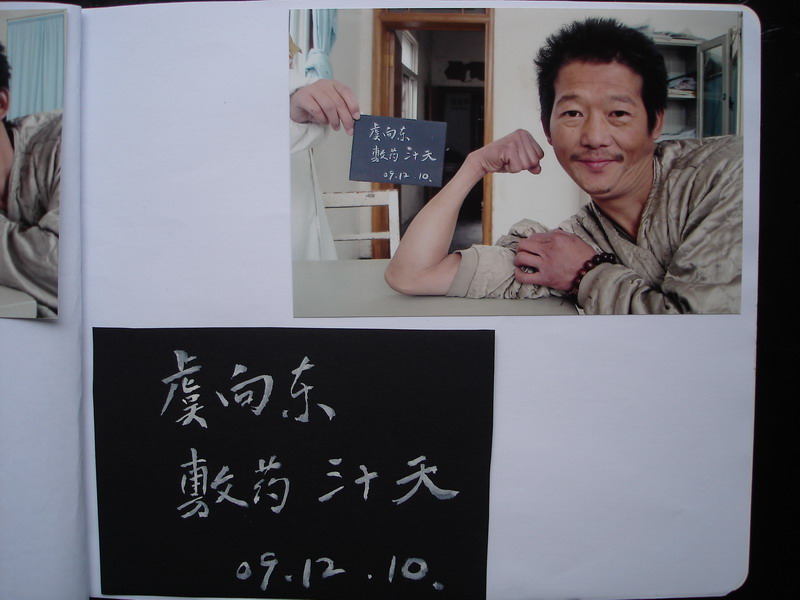 虞向东
敷药 三十天
09.12.10.
虞向东
敷药 三十天
09.12.10.